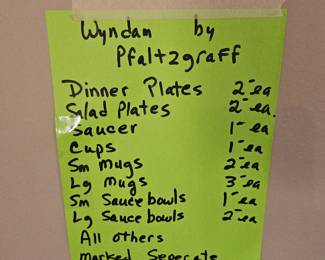 Wyndam by
Pfaltzgraff
Dinner Plates 2- ea
Salad Plates 2- ea.
Saucer 1- ea
Cups 1- ea
Sm Mugs 2- ea
Lg Mugs 3- ea
Sm Sauce bowls 1- ea
Lg Sauce bowls 2- ea
All others
Marked Seperate